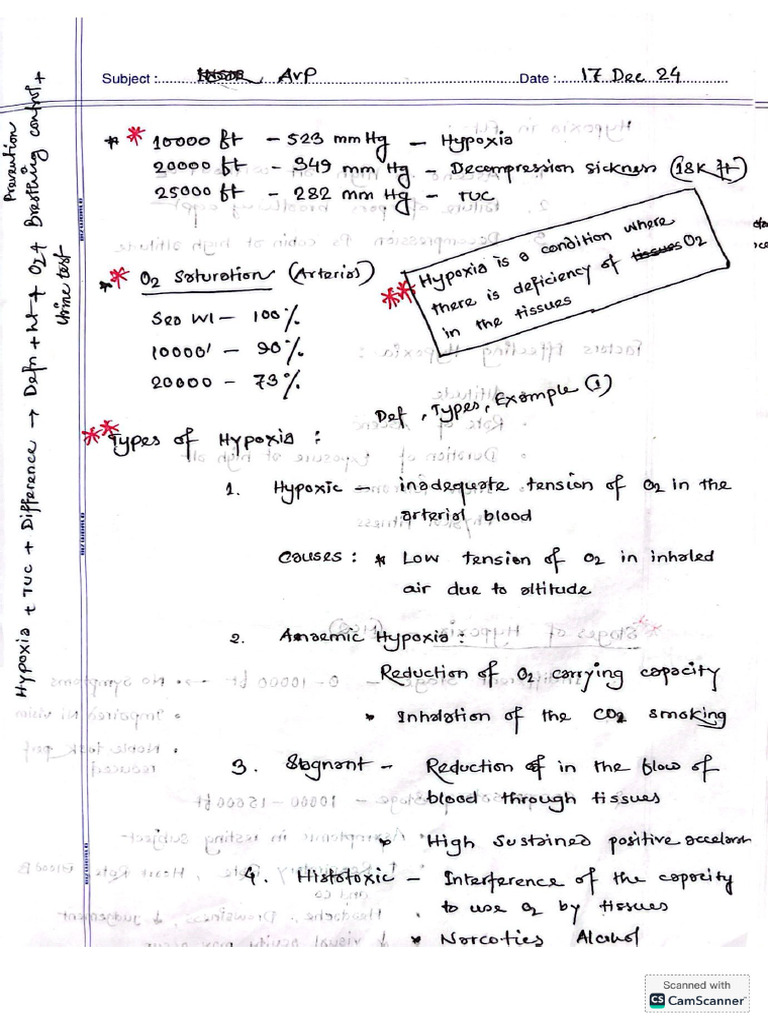 Subject : AvP Date : 17 Dec 24
* * 10000 ft - 523 mm Hg - Hypoxia
20000 ft - 349 mm Hg - Decompression sickness (18K ft)
25000 ft - 282 mm Hg - TUC
** O2 Saturation (Arterial)
Sea Wl - 100%
10000' - 90%
20000 - 73%
** Hypoxia is a condition where
there is deficiency of tissues O2
in the tissues
Def, Types, Example (1)
** Types of Hypoxia :
1. Hypoxic - inadequate tension of O2 in the
arterial blood
Causes : * Low tension of O2 in inhaled
air due to altitude
2. Anaemic Hypoxia :
Reduction of O2 carrying capacity
• Inhalation of the CO2 smoking
3. Stagnant - Reduction of in the flow of
blood through tissues
• High sustained positive accelerati
4. Histotoxic - Interference of the capacity
to use O2 by tissues
• Narcoties Alcohol
Hypoxia + TUC + Difference → Defn + ht + O2 + Breathing control +
Prevention
time test
Scanned with
CS CamScanner